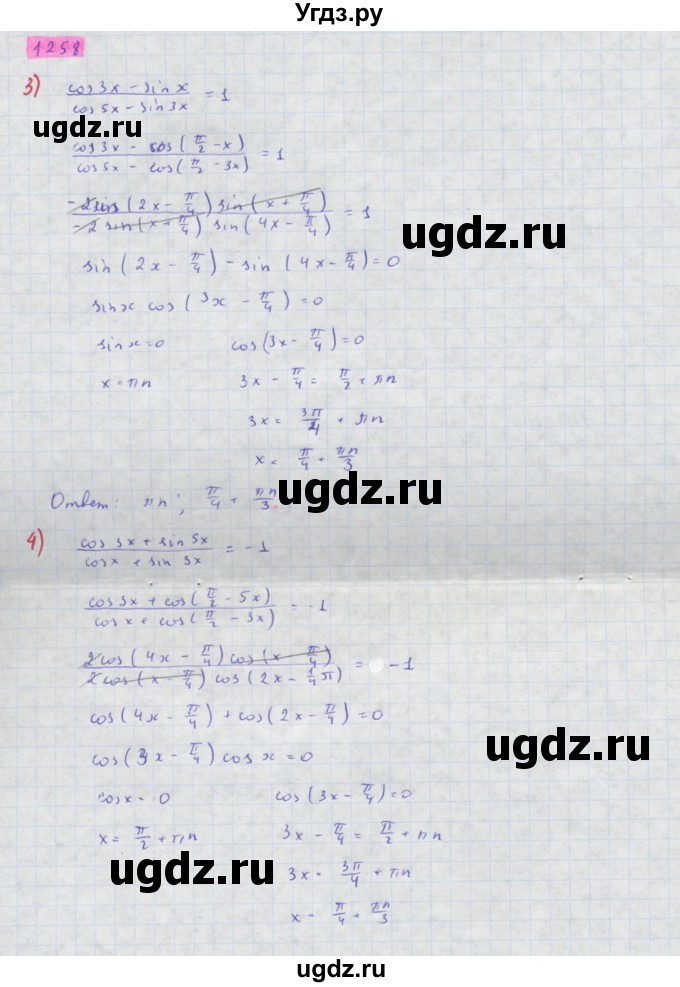 Угдз.ру
1258
3) (cos 3x - sin x)/(cos 5x - sin 3x) = 1
(cos 3x - cos(π/2 - x))/(cos 5x - cos(π/2 - 3x)) = 1
(-2 sin(2x - π/4) sin(x + π/4))/(-2 sin(x + π/4) sin(4x - π/4)) = 1
sin(2x - π/4) - sin(4x - π/4) = 0
sin x cos(3x - π/4) = 0
sin x = 0 cos(3x - π/4) = 0
x = πn 3x - π/4 = π/2 + πn
3x = 3π/4 + πn
x = π/4 + πn/3
Ответ: πn; π/4 + πn/3.
4) (cos 3x + sin 5x)/(cos x + sin 3x) = -1
(cos 3x + cos(π/2 - 5x))/(cos x + cos(π/2 - 3x)) = -1
(2 cos(4x - π/4) cos(x - π/4))/(2 cos(x - π/4) cos(2x - 1/4 π)) = -1
cos(4x - π/4) + cos(2x - π/4) = 0
cos(3x - π/4) cos x = 0
cos x = 0 cos(3x - π/4) = 0
x = π/2 + πn 3x - π/4 = π/2 + πn
3x = 3π/4 + πn
x = π/4 + πn/3
uGdz.ru
uGdz.ru
uGdz.ru
uGdz.ru
uGdz.ru
uGdz.ru
uGdz.ru